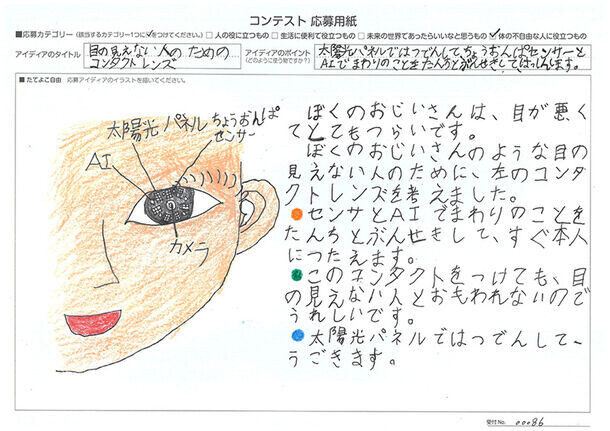 コンテスト 応募用紙
■応募カテゴリー (該当するカテゴリー1つに✓をつけてください。) □人の役に立つもの □生活に便利で役立つもの □未来の世界であったらいいなと思うもの ☑体の不自由な人に役立つもの
アイディアのタイトル
目の見えない人のための
コンタクトレンズ
アイディアのポイント
(どのように使う物ですか?)
太陽光パネルではつでんして、ちょうおんぱセンサーと
AIでまわりのことをたんちとぶんせきしてはっしんます。
■たてよこ自由 応募アイディアのイラストを描いてください。
太陽光パネル
ちょうおんぱ
センサー
AI
カメラ
ぼくのおじいさんは、目が悪く
てとてもつらいです。
ぼくのおじいさんのような目の
見えない人のために、左のコンタ
クトレンズを考えました。
●センサとAIでまわりのことを
たんちとぶんせきして、すぐ本人
につたえます。
●このコンタクトをつけても、目
の見えない人とおもわれないので
うれしいです。
●太陽光パネルではつでんして、
うごきます。
受付No. 00086